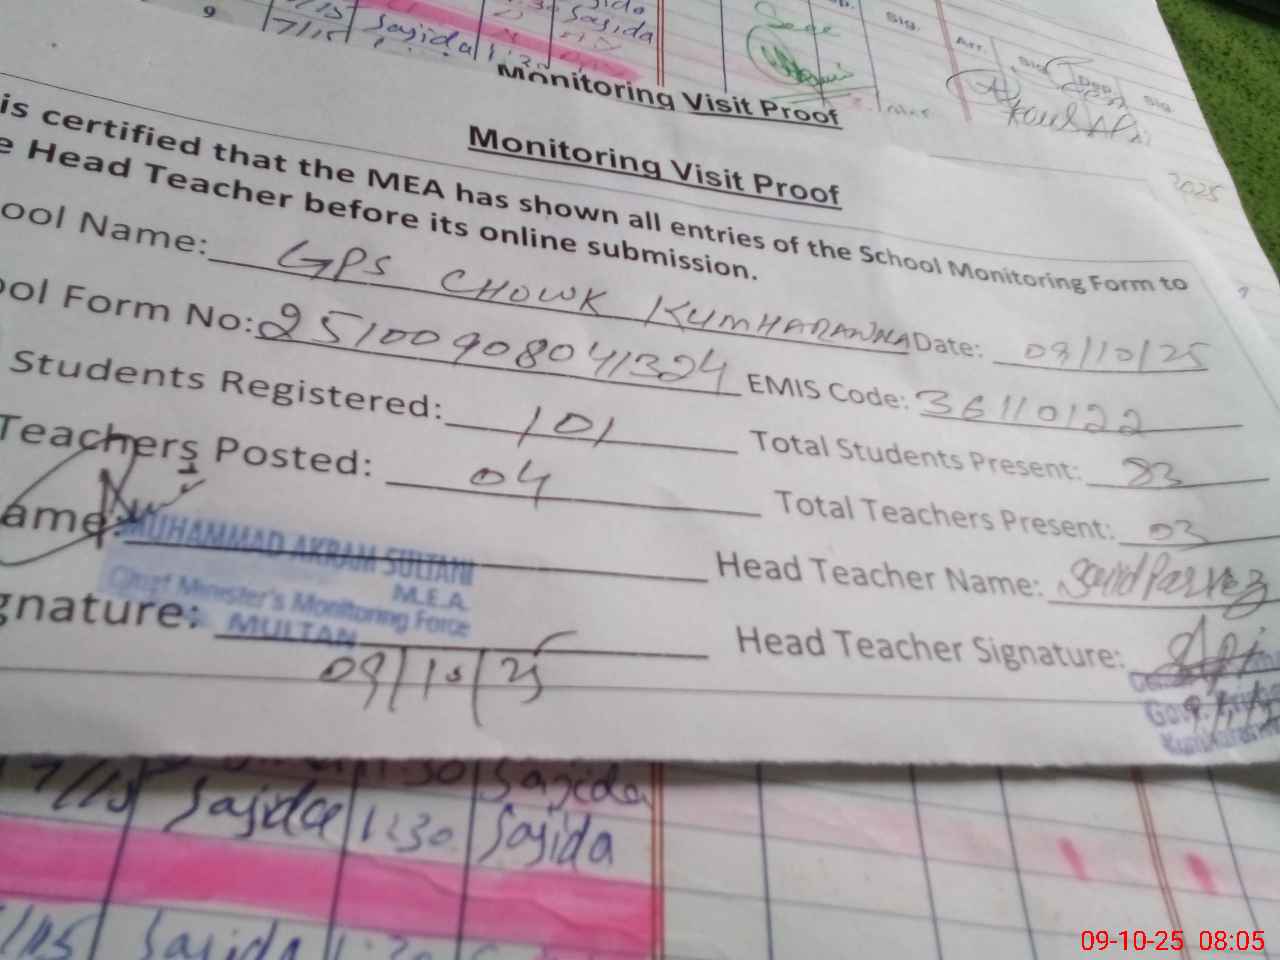 9 7/15 Sajida 1:30 Sajida
Sig. Arr. Sig Dep. Sig
2025
Monitoring Visit Proof
Monitoring Visit Proof
is certified that the MEA has shown all entries of the School Monitoring Form to
e Head Teacher before its online submission.
ool Name: GPS CHOWK KUMHARANWALA Date: 09/10/25
ool Form No: 25100908041324 EMIS Code: 36110122
Students Registered: 101 Total Students Present: 83
Teachers Posted: 04 Total Teachers Present: 03
ame: MUHAMMAD AKRAM SULTANI Head Teacher Name: Sajid Parvez
M.E.A.
Chief Minister's Monitoring Force
MULTAN
gnature: Head Teacher Signature:
09/10/25
7/15 Sajida 1:30 Sajida
Sajida 1:30 Sajida
/15 Sajida
09-10-25 08:05